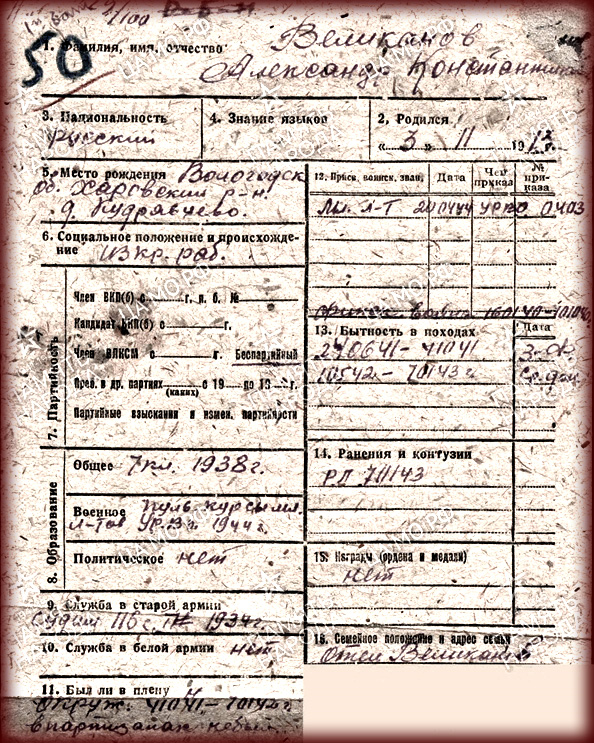 50
1. Фамилия, имя, отчество Великанов
Александр Константинов
3. Национальность
русский
4. Знание языков
2. Родился
«3» 11 19
5. Место рождения Вологодск
об. Харовский р-н
д. Кудрявцево.
6. Социальное положение и происхожде-
ние из кр. раб.
7. Партийность
Член ВКП(б) с г. п. б. №
Кандидат ВКП(б) с г.
Член ВЛКСМ с г. Беспартийный
Преб. в др. партиях (каких) с 19 по 19 г.
Партийные взыскания и измен. партийности
8. Образование
Общее 7 кл. 1938 г.
Военное пуль. курсы мл.
л-тов 1944 г.
Политическое нет
9. Служба в старой армии
10. Служба в белой армии нет
11. Был ли в плену
окруж. 41041-70142 г
в партизанах не был
12. Присв. воинск. зван. Дата Чей приказ № приказа
Мл. л-т 200444 0403
13. Бытность в походах Дата
270641-41041
10542-70143 г
14. Ранения и контузии
РЛ 70143
15. Награды (ордена и медали)
нет
16. Семейное положение и адрес семьи
Отец Великанов